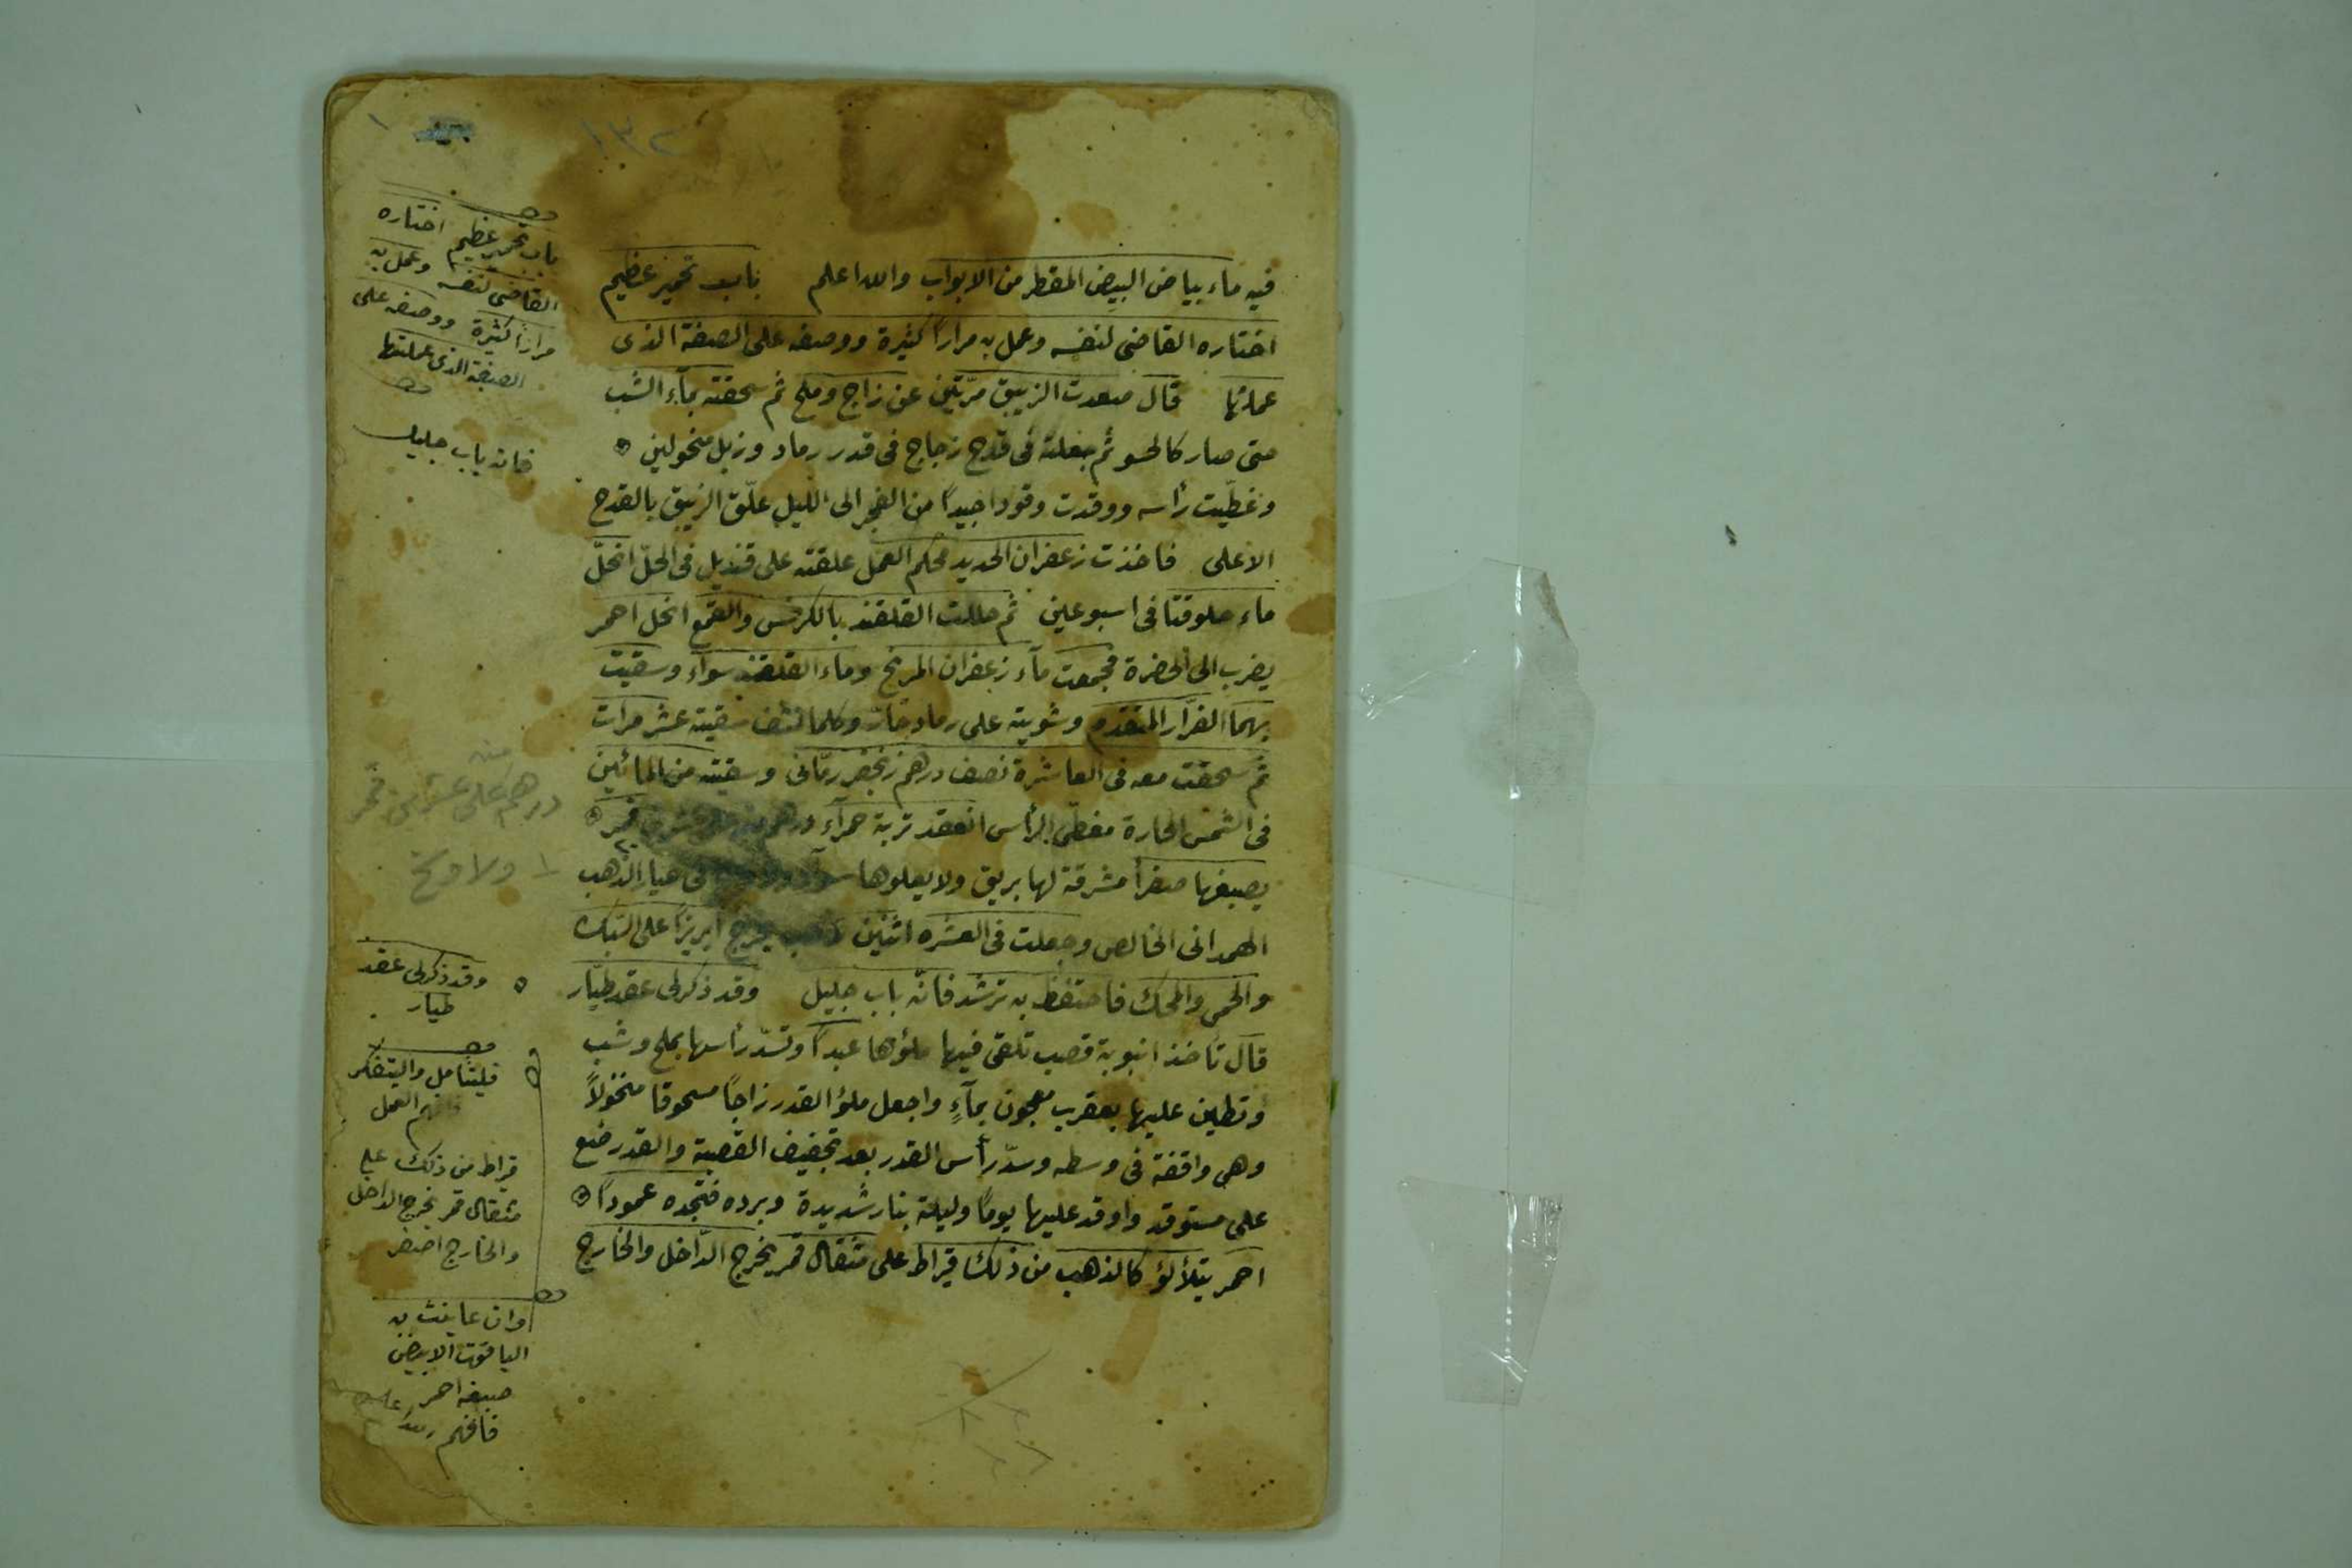 ١٣٢
١
فيه ماء بياض البيض المقطر من الابواب والله اعلم باب تحمير عظيم
اختاره القاضى لنفسه وعمل به مراراً كثيرة ووصفه على الصفة الذى
عملتها قال صعدت الزيبق مرّتين عن زاج وملح ثم سحقته بمآء الشب
حتى صار كالحسو ثم جعلته فى قدح زجاج فى قدر رماد وزبل منخولين
وغطّيت رأسه ووقدت وقودا جيداً من الفجر الى الليل علّق الزيبق بالقدح
الاعلى فاخذت زعفران الحديد محكم العمل علقته على قنديل فى الحلّ انحلّ
ماء حلوقتا فى اسبوعين ثم حللت القلقند بالكرفس والقمع انحل احمر
يضرب الى الخضرة فجمعت مآء زعفران المريخ وماء القلقند سواء وسقيت
بهما الفرّار المتقدم وشويته على رماد حارّ وكلما نشف سقيته عشر مرات
ثم سحقت معه فى العاشرة نصف درهم زنجفر رمّانى وسقيته من المائين
فى الشمس الحارة مغطّى الرأس انعقد تربة حمرآء درهم قمر
يصبغها صفرا مشرقة لها بريق ولا يعلوها سواد ولا فى عيار الذهب
الهمدانى الخالص وجعلت فى العشره اثنين ذهب يخرج ابريزاً على السبك
والحمى والمحك فاحتفظ به ترشد فانّه باب جليل وقد ذكر لى عقد طيّار
قال تأخذ انبوبة قصب تلقى فيها ملؤها عبداً وتسدّ رأسها بملح وشب
وتطين عليها بعقرب معجون بمآءٍ واجعل ملؤ القدر زاجاً مسحوقا منخولاً
وهى واقفة فى وسطه وسدّ رأس القدر بعد تجفيف القصبة والقدر ضع
على مستوقد واوقد عليها يوماً وليلة بنار شديدة وبرده فتجده عموداً
احمر يتلألؤ كالذهب من ذلك قيراط على مثقال قمر يخرج الدّاخل والخارج
باب تحمير عظيم اختاره
القاضى لنفسه وعمل به
مراراً كثيرة ووصفه على
الصفة الذى عملتها
فانه باب جليل
منه
درهم على عشرين قمر
ولا وسخ
وقد ذكر لى عقد
طيار
فليتامل واليتفكر
العمل
قراط من ذلك على
مثقال قمر يخرج الداخل
والخارج اصفر
وان عاينت به
الياقوت الابيض
صبغه احمر
فافهم